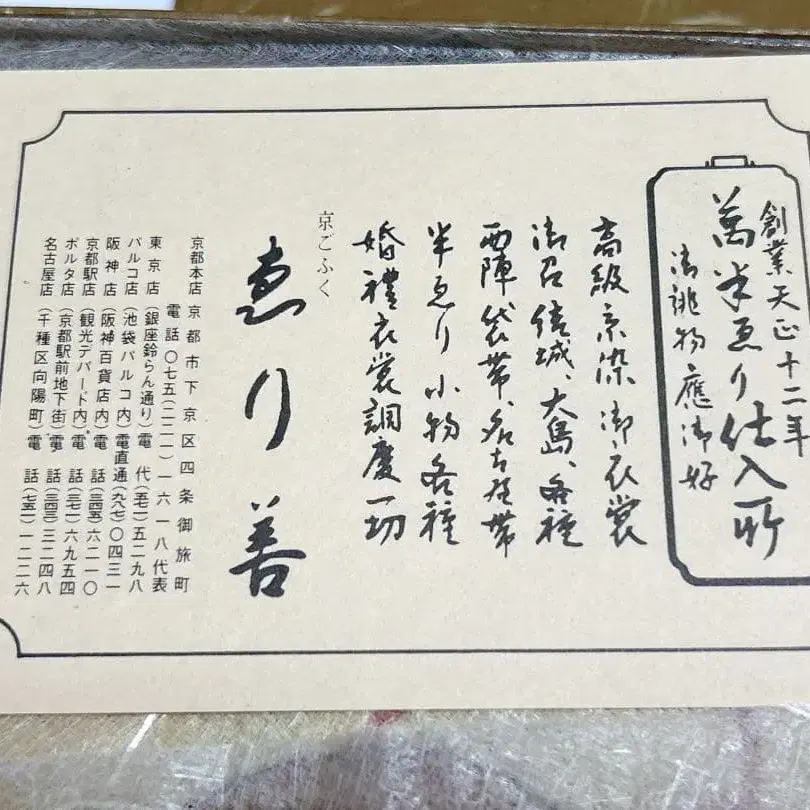 創業天正十二年
萬半ゑり仕入所
御誂物應御好
高級京染御衣裳
御召、結城、大島、各種
西陣袋帯、名古屋帯
半ゑり小物各種
婚禮衣裳調度一切
京ごふく
ゑり善
京都本店 京都市下京区四条御旅町
電話〇七五(二二一)一六一八代表
東京店(銀座鈴らん通り)電 代(五七一)五二九八
パルコ店(池袋パルコ内)電直通(九八七)〇四三一
阪神店(阪神百貨店内)電話(三四五)六二一〇
京都駅店(観光デパート内)電話(三七一)六九五四
ポルタ店(京都駅前地下街)電話(三四三)三二四八
名古屋店(千種区向陽町)電話(七五一)一二二六